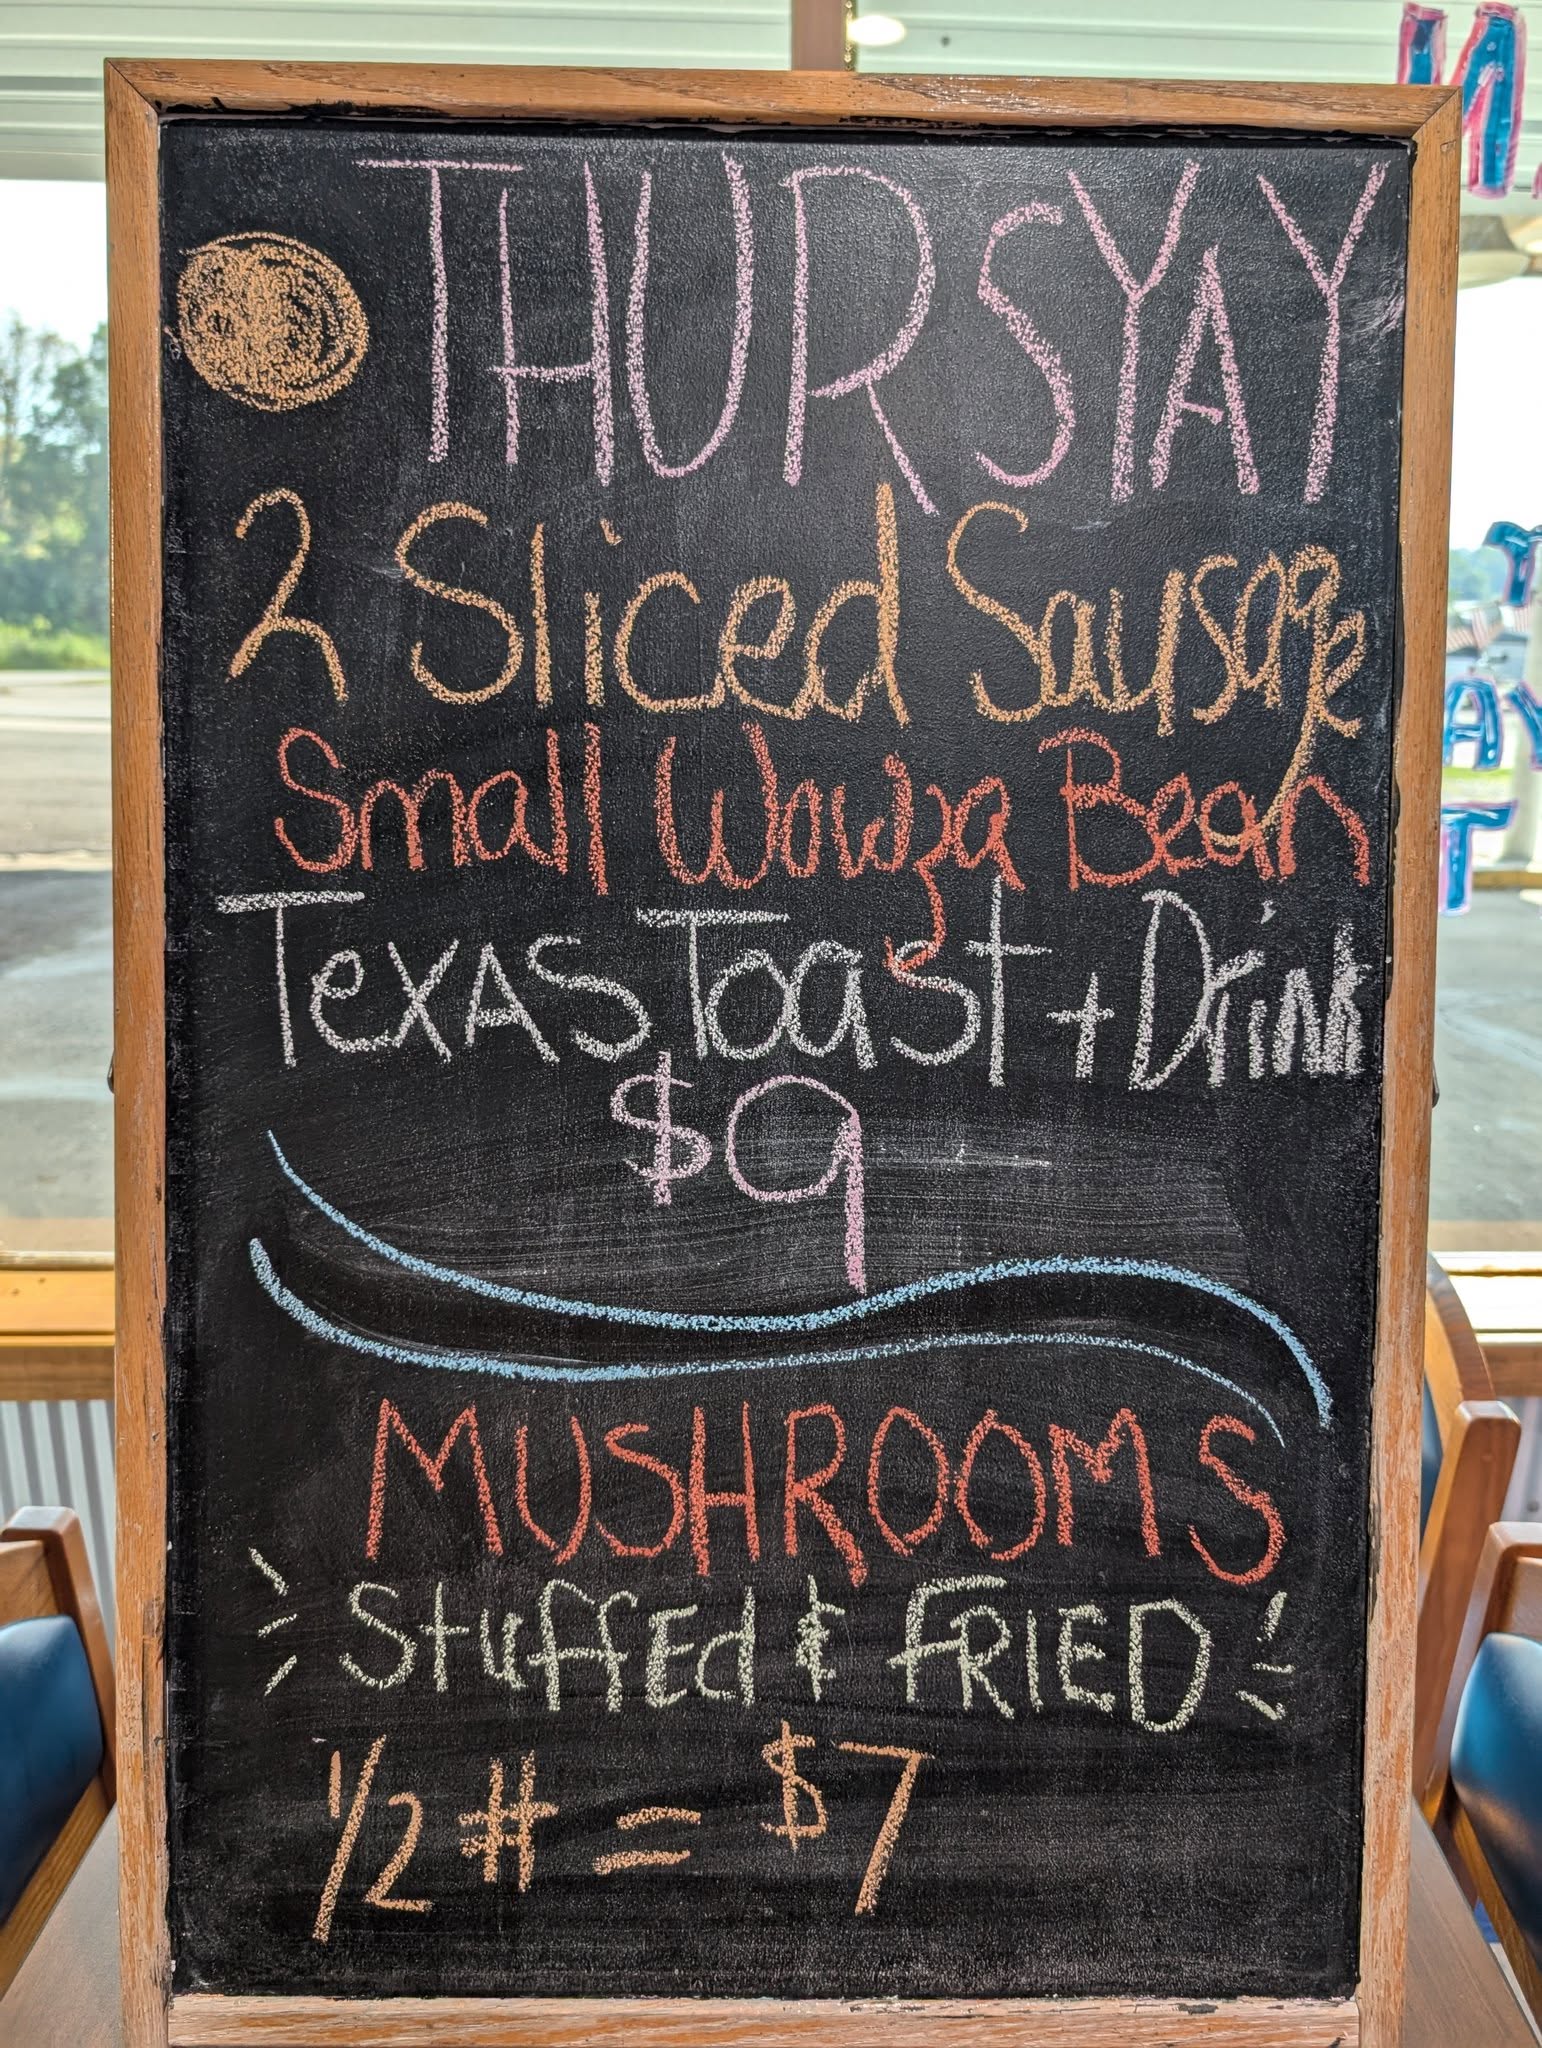 THURSYAY
2 Sliced Sausage
Small Wowza Bean
Texas Toast + Drink
$9
MUSHROOMS
StuffEd & FRIED
1/2 # = $7